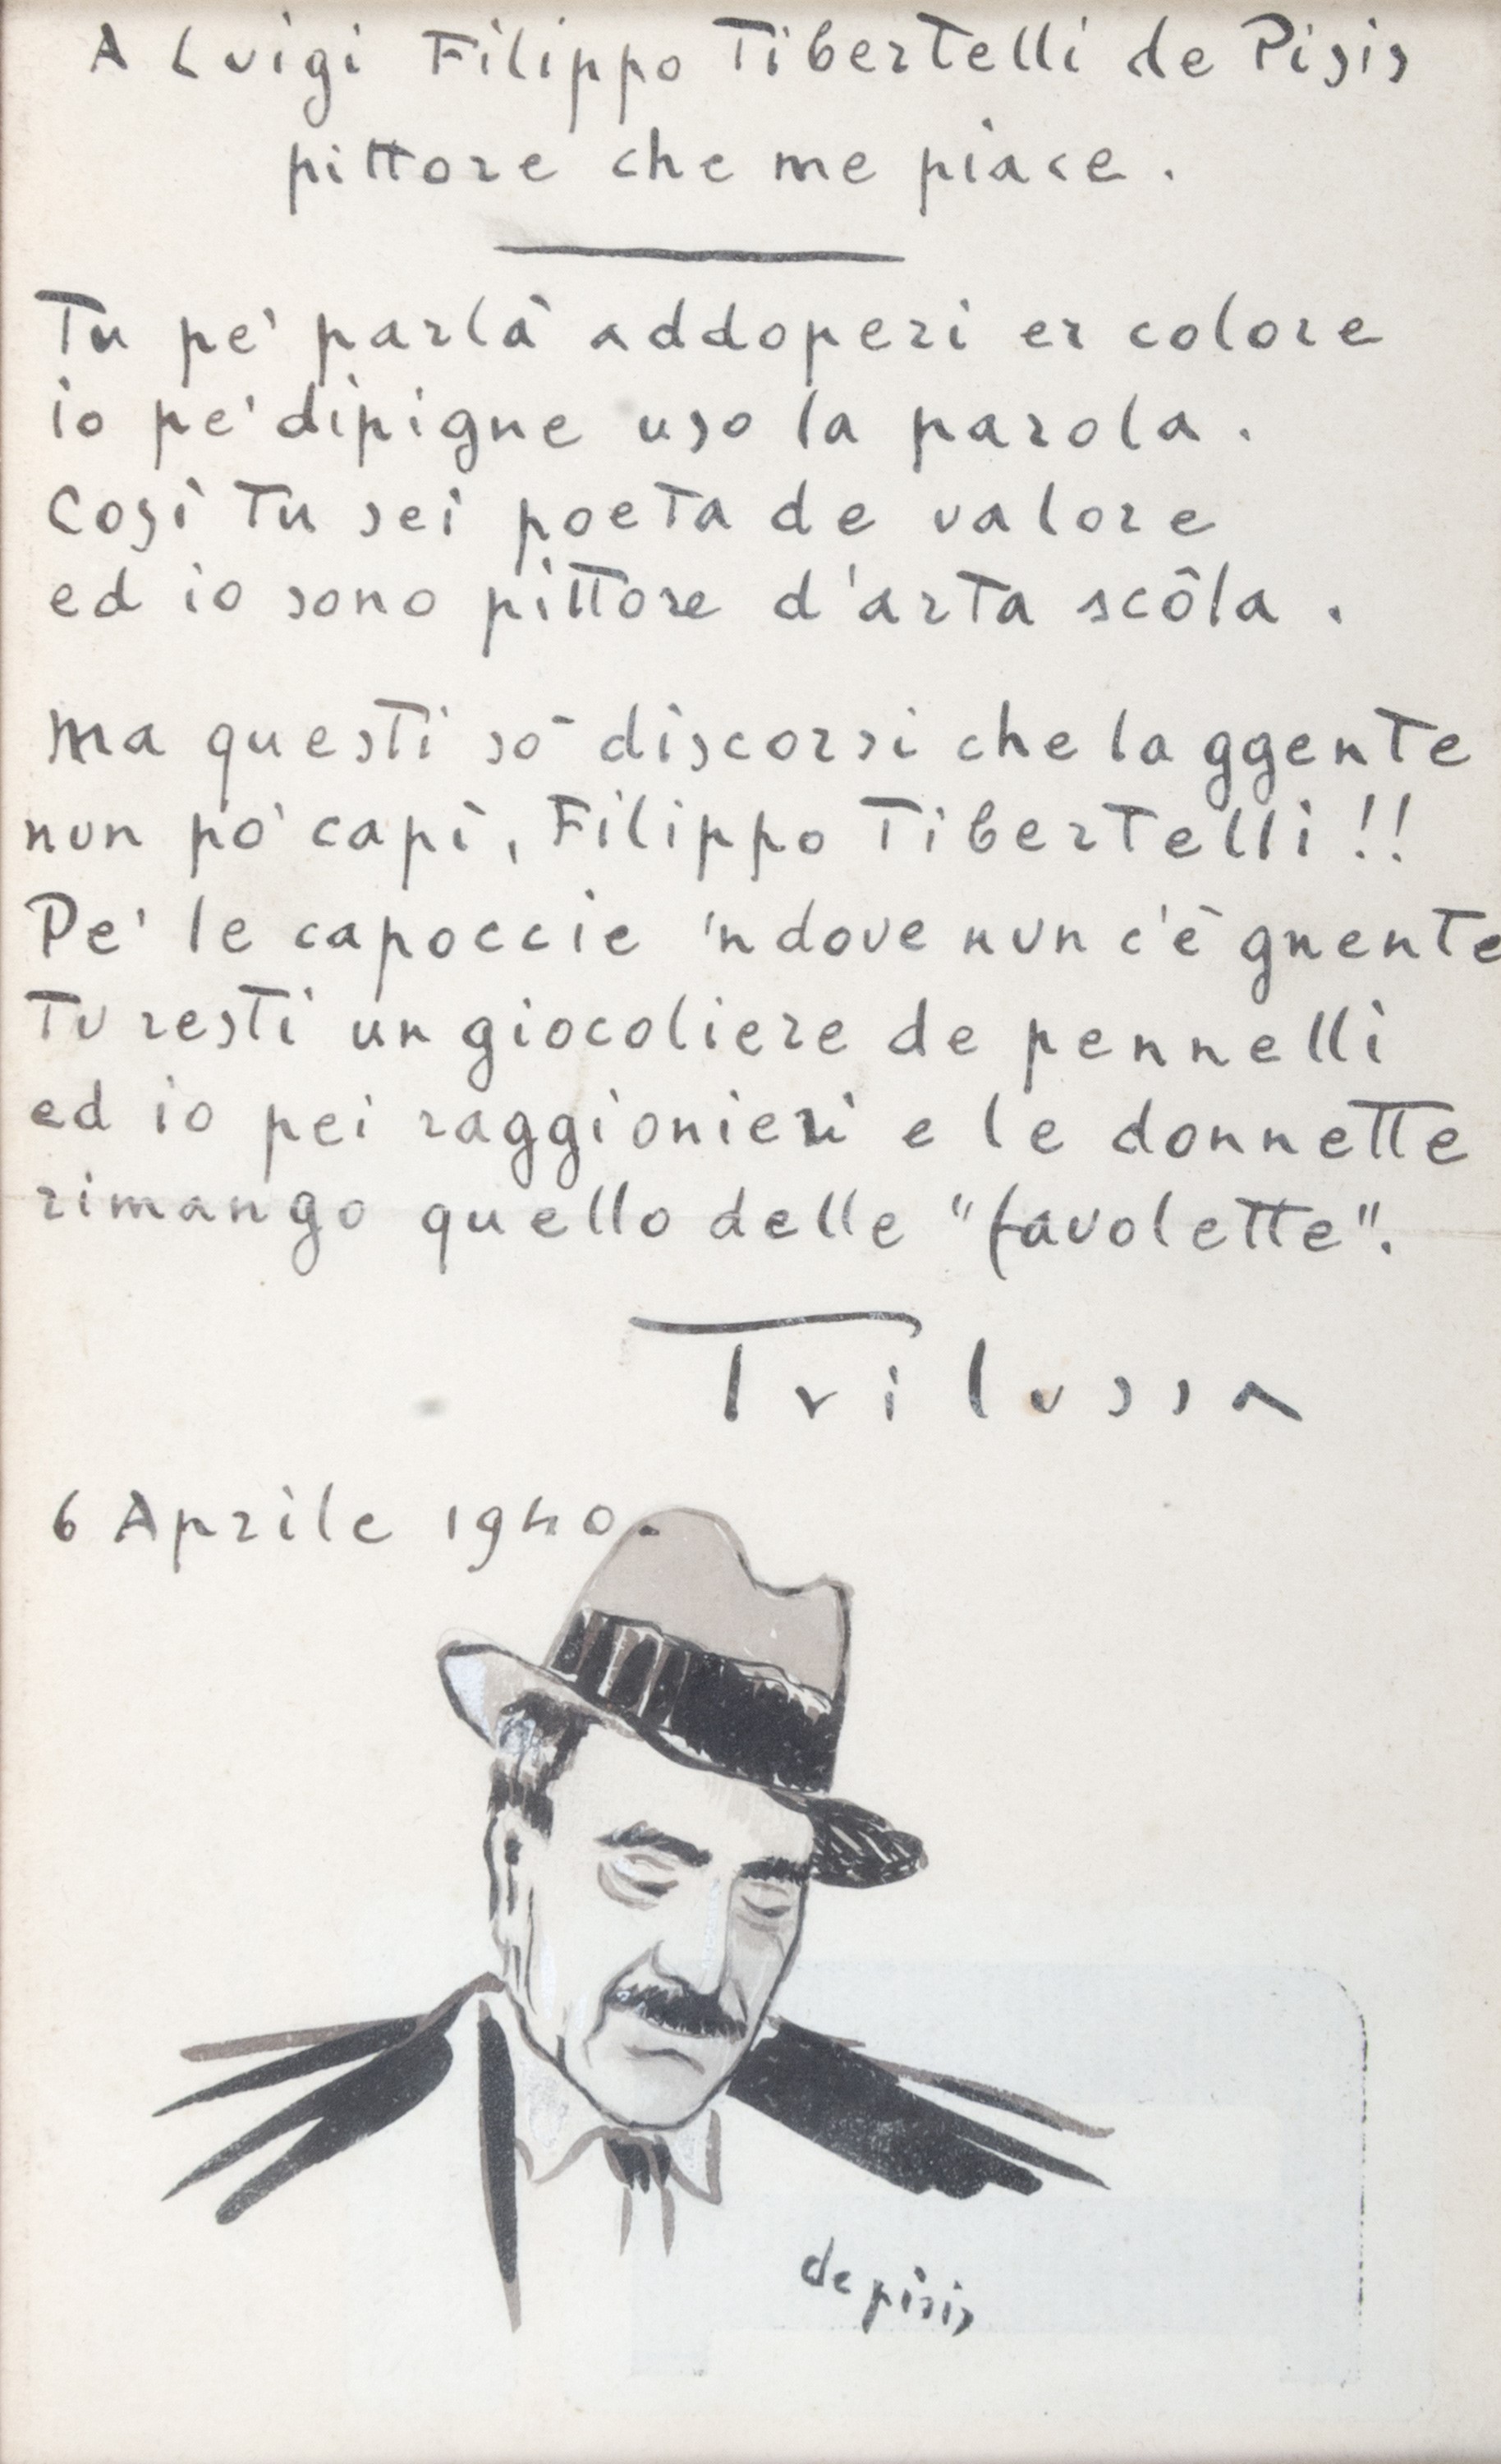 A Luigi Filippo Tibertelli de Pisis
pittore che me piace.
Tu pe' parlà addoperi er colore
io pe' dipigne uso la parola.
Così tu sei poeta de valore
ed io sono pittore d'arta scôla.
Ma questi sò discorsi che la ggente
nun pò capì, Filippo Tibertelli!!
Pe' le capoccie 'ndove nun c'è gnente
tu resti un giocoliere de pennelli
ed io pei raggionieri e le donnette
rimango quello delle "favolette".
Trilussa
6 Aprile 1940.
de pisis